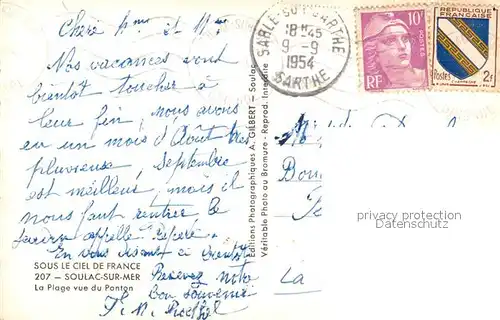 Chère Mme et Mr
Nos vacances vont
bientôt toucher à
leur fin, nous avons
eu un mois d'Août très
pluvieux, Septembre
est meilleur, mais il
nous faut rentrer, le
devoir appelle
En vous disant à bientôt
Recevez notre
bon souvenir
SOUS LE CIEL DE FRANCE
207 - SOULAC-SUR-MER
La Plage vue du Ponton
Editions Photographiques A. GILBERT - Soulac
Véritable Photo au Bromure - Reprod. Interdite
SABLÉ-SUR-SARTHE
18H45
9-9
1954
SARTHE
10F
POSTES
RF
REPUBLIQUE
FRANÇAISE
Postes
2f
CHAMPAGNE
La
privacy protection
Datenschutz